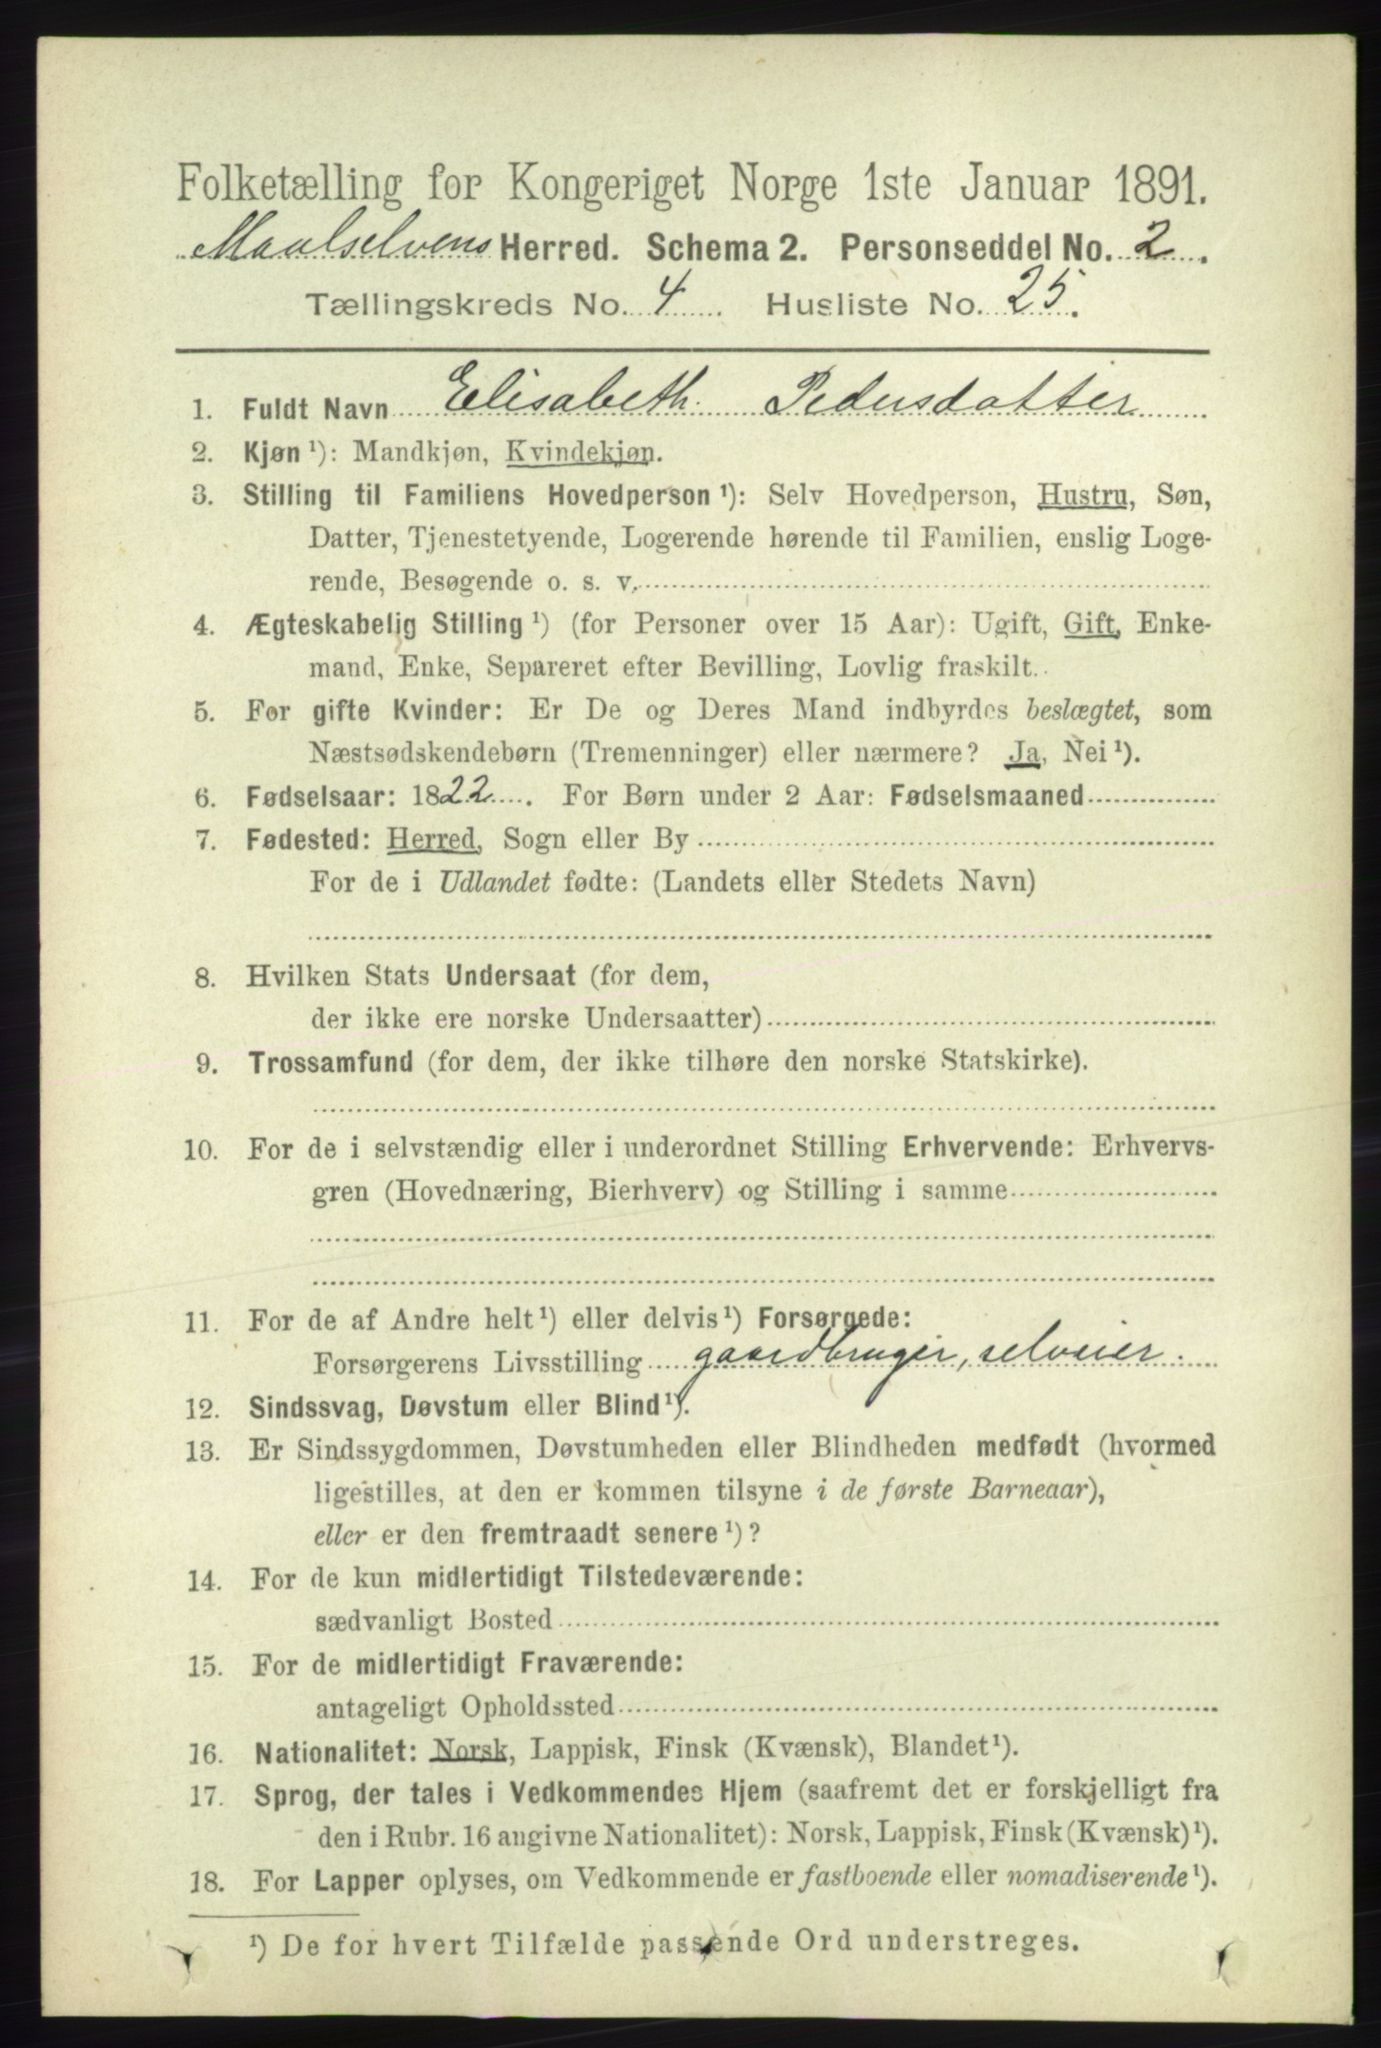 Folketælling for Kongeriget Norge 1ste Januar 1891.
Maalselvens Herred. Schema 2. Personseddel No. 2.
Tællingskreds No. 4 Husliste No. 25.
1. Fuldt Navn Elisabeth Pedersdatter
2. Kjøn ¹): Mandkjøn, Kvindekjøn.
3. Stilling til Familiens Hovedperson ¹): Selv Hovedperson, Hustru, Søn,
Datter, Tjenestetyende, Logerende hørende til Familien, enslig Loge-
rende, Besøgende o. s. v.
4. Ægteskabelig Stilling ¹) (for Personer over 15 Aar): Ugift, Gift, Enke-
mand, Enke, Separeret efter Bevilling, Lovlig fraskilt.
5. For gifte Kvinder: Er De og Deres Mand indbyrdes beslægtet, som
Næstsødskendebørn (Tremenninger) eller nærmere? Ja, Nei ¹).
6. Fødselsaar: 1822. For Børn under 2 Aar: Fødselsmaaned
7. Fødested: Herred, Sogn eller By
For de i Udlandet fødte: (Landets eller Stedets Navn)
8. Hvilken Stats Undersaat (for dem,
der ikke ere norske Undersaatter)
9. Trossamfund (for dem, der ikke tilhøre den norske Statskirke).
10. For de i selvstændig eller i underordnet Stilling Erhvervende: Erhvervs-
gren (Hovednæring, Bierhverv) og Stilling i samme
11. For de af Andre helt ¹) eller delvis ¹) Forsørgede:
Forsørgerens Livsstilling gaardbruger, selveier.
12. Sindssvag, Døvstum eller Blind ¹).
13. Er Sindssygdommen, Døvstumheden eller Blindheden medfødt (hvormed
ligestilles, at den er kommen tilsyne i de første Barneaar),
eller er den fremtraadt senere ¹)?
14. For de kun midlertidigt Tilstedeværende:
sædvanligt Bosted
15. For de midlertidigt Fraværende:
antageligt Opholdssted
16. Nationalitet: Norsk, Lappisk, Finsk (Kvænsk), Blandet ¹).
17. Sprog, der tales i Vedkommendes Hjem (saafremt det er forskjelligt fra
den i Rubr. 16 angivne Nationalitet): Norsk, Lappisk, Finsk (Kvænsk) ¹).
18. For Lapper oplyses, om Vedkommende er fastboende eller nomadiserende ¹).
¹) De for hvert Tilfælde passende Ord understreges.